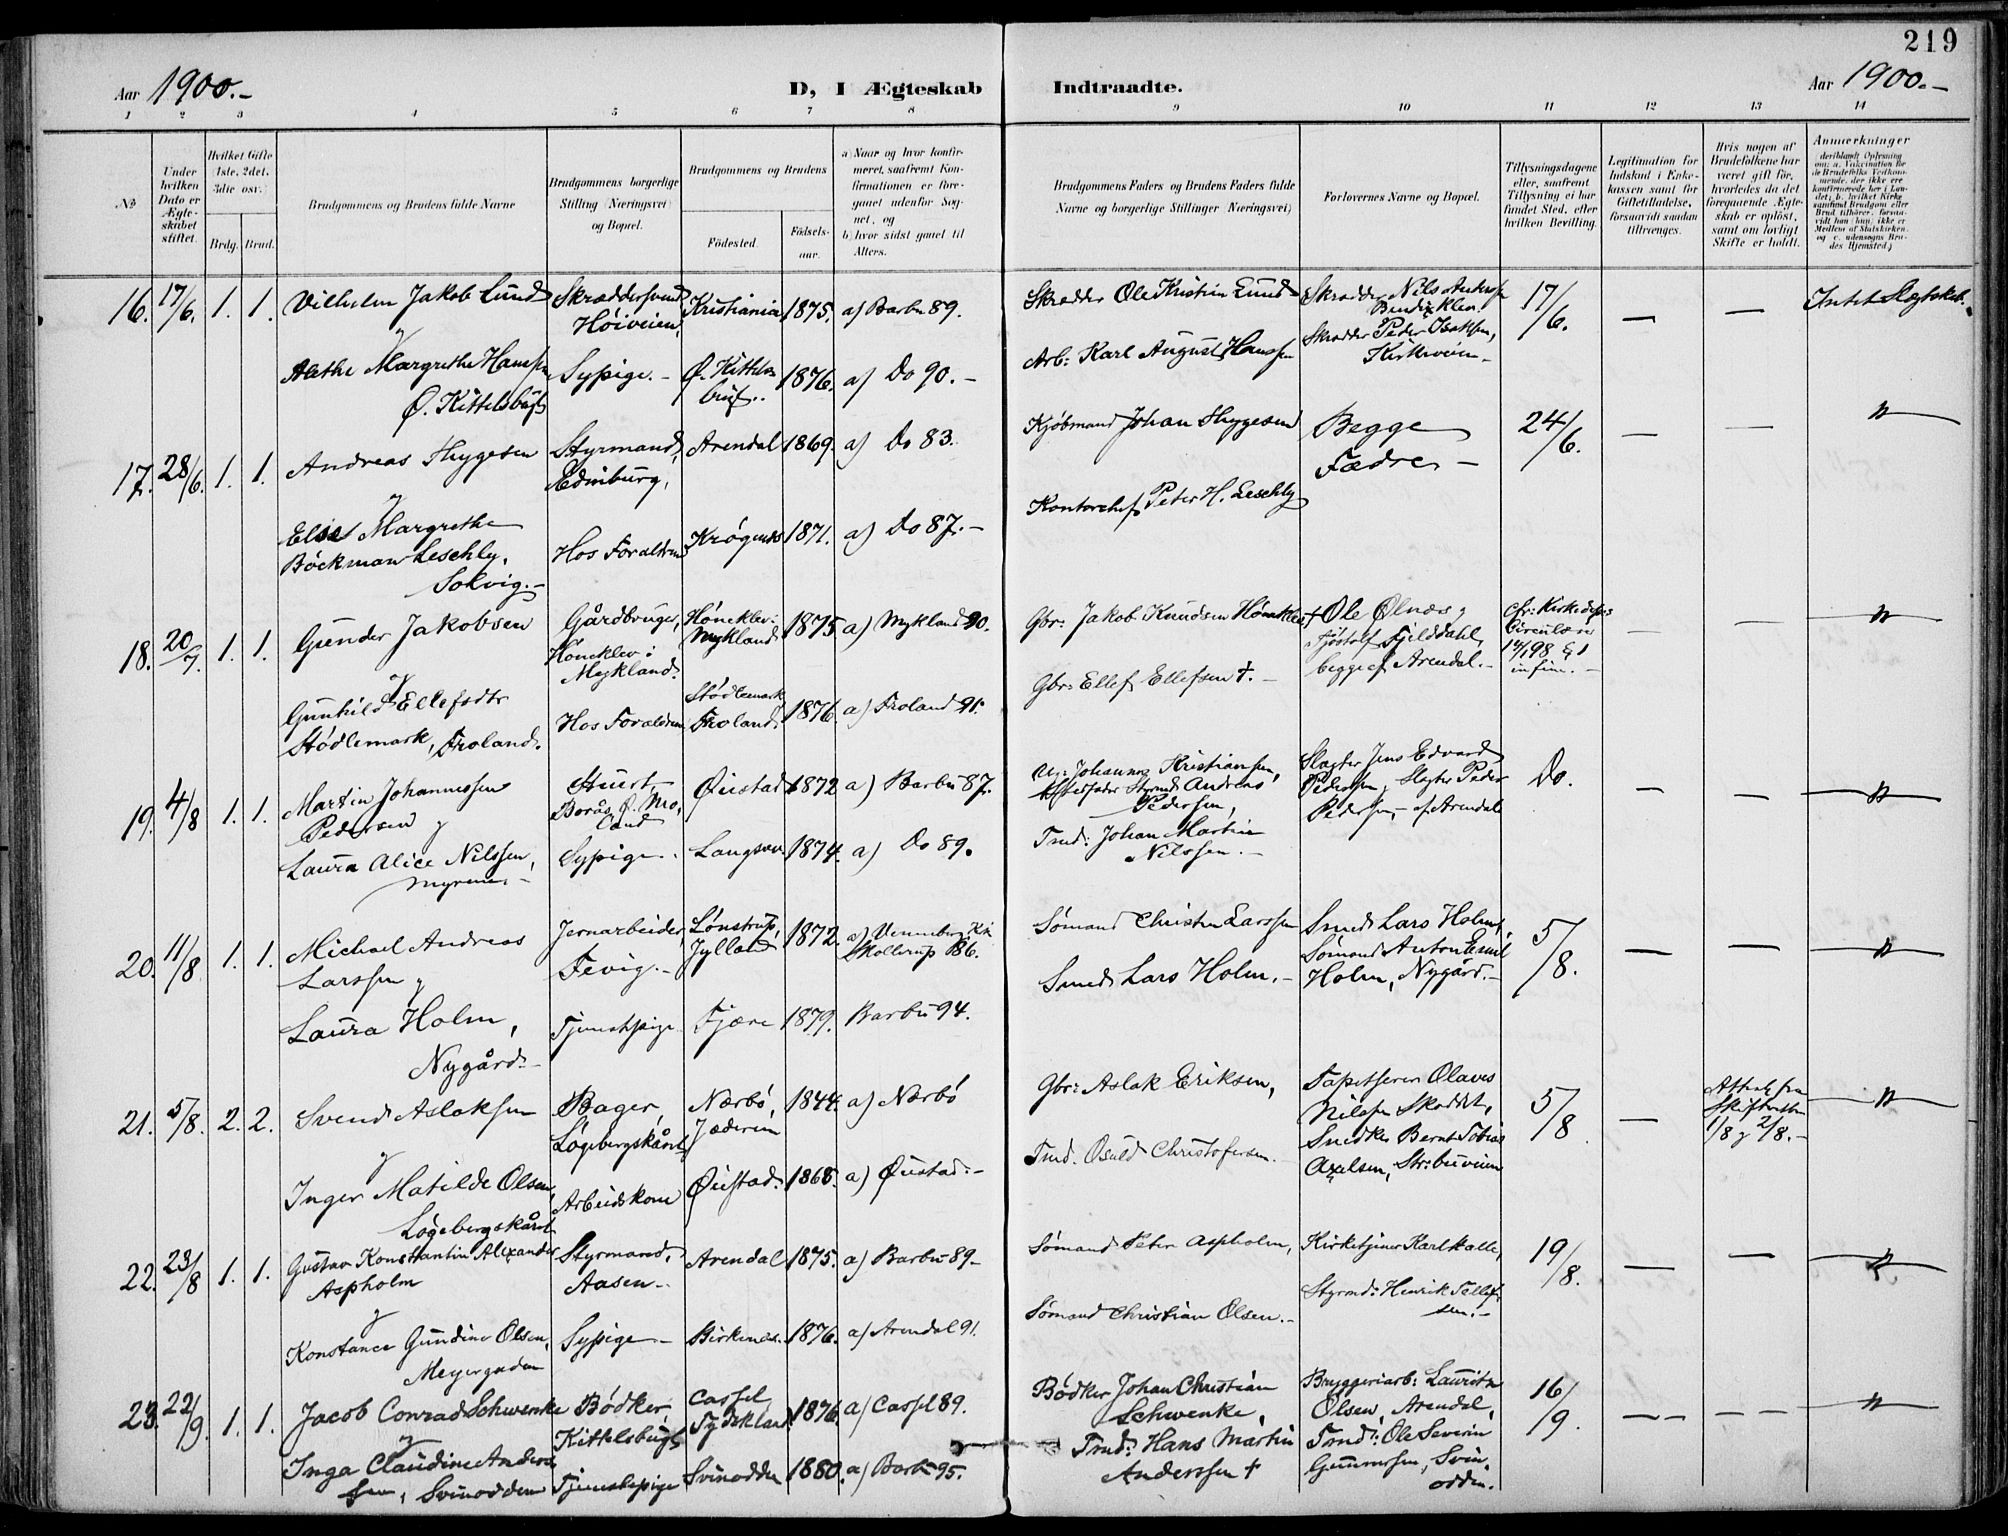 219
Aar 1900.-
D, I Ægteskab
Indtraadte.
Aar 1900.-
1 2 3 4 5 6 7 8 9 10 11 12 13 14
No
Under hvilken Dato er Ægteskabet stiftet.
Hvilket Gifte 1ste, 2det, 3die osv.
Brdg. Brud.
Brudgommens og Brudens fulde Navne
Brudgommens borgerlige Stilling (Næringsvei) og Bopæl.
Brudgommens og Brudens
Fødested.
Fødselsaar.
a) Naar og hvor konfirmeret, saafremt Konfirmationen er foregaaet udenfor Sognet, og
b) hvor sidst gaaet til Alters.
Brudgommens Faders og Brudens Faders fulde Navne og borgerlige Stillinger (Næringsvei)
Forlovernes Navne og Bopæl.
Tillysningsdagene eller, saafremt Tillysning ei har fundet Sted, efter hvilken Bevilling.
Legitimation for Indskud i Enkekassen samt for Giftetilladelse, forsaavidt saadan tiltrænges.
Hvis nogen af Brudefolkene har været gift før, hvorledes da det foregaaende Ægteskab er opløst, samt om lovligt Skifte er holdt.
Anmærkninger
16. 17/6. 1. 1. Vilhelm Jakob Lund Skræddersvend Høiveien, Kristiania 1875. a) Barbu 89. Skrædder Ole Kristian Lund Skrædder Nils Anders Bendixklev. 17/6. — — Intet Slægtskab.
Skrædder Peder Isaksen, Kirkeveien -
& Alethe Margrethe Hanssen Ø. Kittelsbugt Sypige. - Ø. Kittelsbugt. 1876. a) Do 90. - Arb: Karl August Hanssen
17. 28/6. 1. 1. Andreas Thygesen Styrmand, Edinburg, Arendal 1869. a) Do 83. Kjøbmand Johan Thygesen Begge Fædre - 24/6. — — "
& Else Margrethe Böckman Leschly, Solvig. - Hos Foraldrene Krøgenes 1871. a) Do 87. - Kontorchef Peter H. Leschly
18. 20/7. 1. 1. Gunder Jakobsen Gårdbruger, Høneklev i Mykland. Høneklev: Mykland 1875 a) Mykland 90. Gbr: Jakob Knudsen Høneklev † Ole Ølnes, Tjøstolf Fjelddahl, begge af Arendal. - cfr: Kirkedeps Circulære 14/1 98 § 1 in fine. - — — "
& Gunhild Ellefsdtr Stødlemark, Froland. Hos Foraldrene Stødlemark Froland. 1876. a) Froland 91. Gbr: Ellef Ellefsen †. -
19. 4/8 1. 1. Martin Johannessen Pedersen & Stuert, Borås, Ø. Moland Øiestad 1872 a) Barbu 87. Johannes Kristiansen, Stedfader Styrmd. Andreas Pedersen, Slagter Jens Edvard Pedersen, Slagter Peder Pedersen, - af Arendal Do. — — "
Laura Alice Nilssen, Myrene. - Sypige. Langsæv. 1874. a) Do 89. Tmd: Johan Martin Nilssen. -
20. 11/8 1. 1. Michael Andreas Larssen & Jernarbeider, Fevig. - Lønstrup, Jylland 1872. a) Vennebergs Kirk. Skallerup 86. Sømand Christen Larssen Smed Lars Holm, Sømand Anton Emil Holm, Nygård. - 5/8. — — "
Laura Holm, Nygård. - Tjenestpige Fjære 1879. Barbu 94. Smed Lars Holm. -
21. 5/8. 2. 2. Svend Aslaksen Bager, Løgebergskåret Nærbö, Jæderen 1844. a) Nærbö Gbr: Aslak Eriksen, Tapetserer Olaves Nilsen Skaddet, Snedker Bernt Tobias Axelsen, Strbuveien 5/8 — Attest fra Skifteretten 1/8 & 2/8. - "
& Inger Matilde Olsen, Løgebergskåret Arbeidskone Øiestad. 1868. a) Øiestad. - Tmd. Osuld Christofersen.
22. 23/8 1. 1. Gustav Konstantin Alexander Aspholm Styrmand, Aasen. - Arendal 1875. a) Barbu 89 - Sømand Peter Aspholm, Kirketjener Karl Kalle, Styrmd: Henrik Tellefsen. - 19/8. — — "
& Konstance Gundine Olsen, Meyergaden Sypige - Birkenes. 1876. a) Arendal 91. Sømand Christian Olsen. -
23. 22/9. 1. 1. Jacob Conrad Schwenke Bödker, Kittelsbugt Cassel Tydskland. 1876. a) Cassel 89. Bödker Johan Christian Schwenke, Bryggeriarb: Lauritz Olsen, Arendal, 16/9. — — "
& Inga Claudine Anderssen, Svinodden Tjenestepige Svinodden 1880. a) Barbu 95. Tmd: Hans Martin Anderssen † Tmd: Ole Severin Gunnersen, Svinodden.